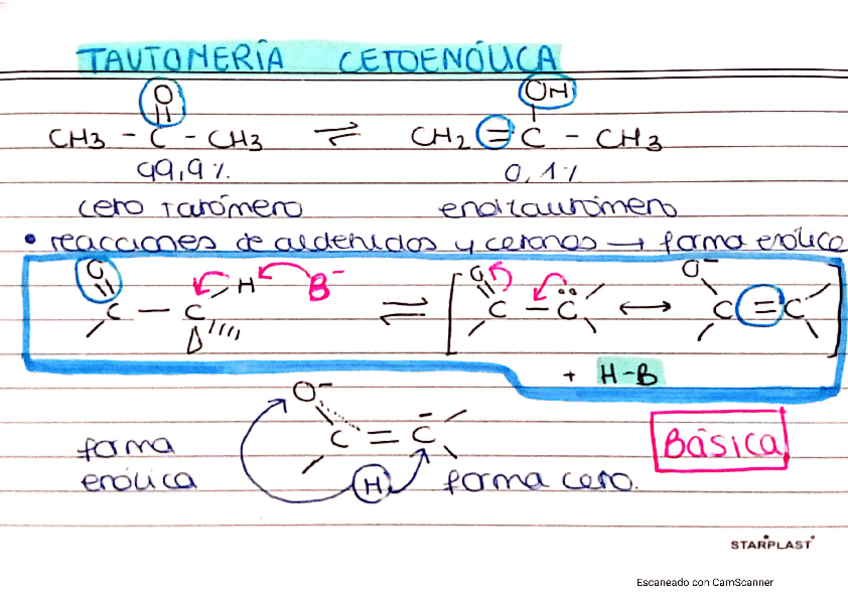 TAUTOMERÍA CETOENÓLICA
O OH
CH3 - C - CH3 ⇌ CH2 = C - CH3
99,9% 0,1%
ceto tatómero enol tautómero
• reacciones de aldehídos y cetonas → forma enólica
O H B⁻ O O⁻
C - C ⇌ [ C - C̈ ↔ C = C ]
+ H-B
O⁻
C = C⁻
forma enólica
H forma ceto.
Básica
STARPLAST
Escaneado con CamScanner